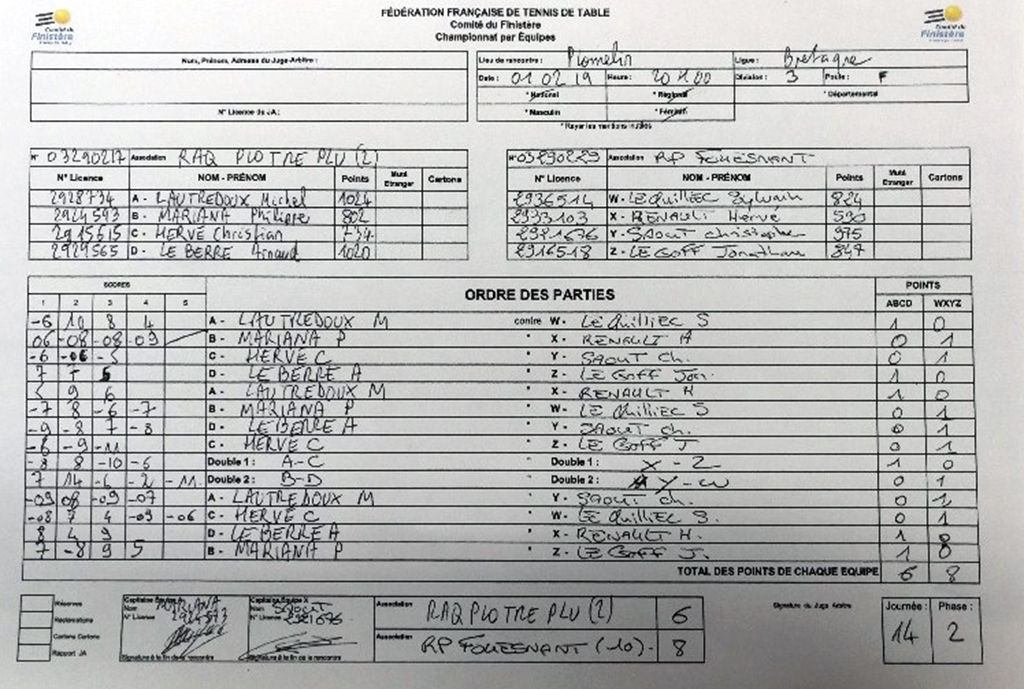 FÉDÉRATION FRANÇAISE DE TENNIS DE TABLE
Comité du Finistère
Championnat par Équipes
Comité du Finistère
Comité du Finistère
Nom, Prénom, Adresse du Juge-Arbitre :
N° Licence de JA :
Lieu de rencontre : Plomelin Ligue : Bretagne
Date : 01 02 19 Heure : 20H00 Division : 3 Poule : F
* National * Régional * Départemental
* Masculin * Féminin
* Rayer les mentions inutiles
N° 03290217 Association RAQ PLO TRE PLU (2)
N° Licence NOM - PRÉNOM Points Muté Etranger Cartons
2928734 A - LAUTREDOUX Michel 1024
2924593 B - MARIANA Philippe 802
2915615 C - HERVÉ Christian 734
2929565 D - LE BERRE Arnaud 1020
N° 03290229 Association RP FOUESNANT
N° Licence NOM - PRÉNOM Points Muté Etranger Cartons
2936514 W - LE QUILLIEC Sylvain 824
2933103 X - RENAULT Hervé 590
2921676 Y - SAOUT Christophe 975
2916518 Z - LE GOFF Jonathan 847
SCORES ORDRE DES PARTIES POINTS
1 2 3 4 5 ABCD WXYZ
-6 10 8 4 A - LAUTREDOUX M contre W - LE QUILLIEC S 1 0
06 -08 -08 -09 B - MARIANA P " X - RENAULT H 0 1
-6 -06 -5 C - HERVÉ C " Y - SAOUT Ch. 0 1
7 7 5 D - LE BERRE A " Z - LE GOFF Jon. 1 0
5 9 6 A - LAUTREDOUX M " X - RENAULT H 1 0
-7 8 -6 -7 B - MARIANA P " W - LE Quilliec S 0 1
-9 -8 7 -8 D - LE BERRE A " Y - SAOUT Ch. 0 1
-6 -9 -11 C - HERVÉ C " Z - LE GOFF J 0 1
-8 8 -10 -5 Double 1 : A-C " Double 1 : X - Z 1 0
7 14 -6 -2 -11 Double 2 : B-D " Double 2 : Y-W 0 1
-09 08 -09 -07 A - LAUTREDOUX M " Y - SAOUT Ch. 0 1
-08 7 4 -09 -06 C - HERVÉ C " W - LE Quilliec S. 0 1
8 4 9 D - LE BERRE A " X - RENAULT H. 1 0
7 -8 9 5 B - MARIANA P " Z - LE GOFF J. 1 0
TOTAL DES POINTS DE CHAQUE EQUIPE 6 8
Réserves
Réclamations
Cartons Cartons
Rapport JA
Capitaine Équipe A
Nom MARIANA
N° Licence 2924593
Signature à la fin de la rencontre
Capitaine Équipe X
Nom SAOUT
N° Licence 2921676
Signature à la fin de la rencontre
Association RAQ PLO TRE PLU (2) 6
Association RP FOUESNANT (10). 8
Signature du Juge Arbitre
Journée : Phase :
14 2